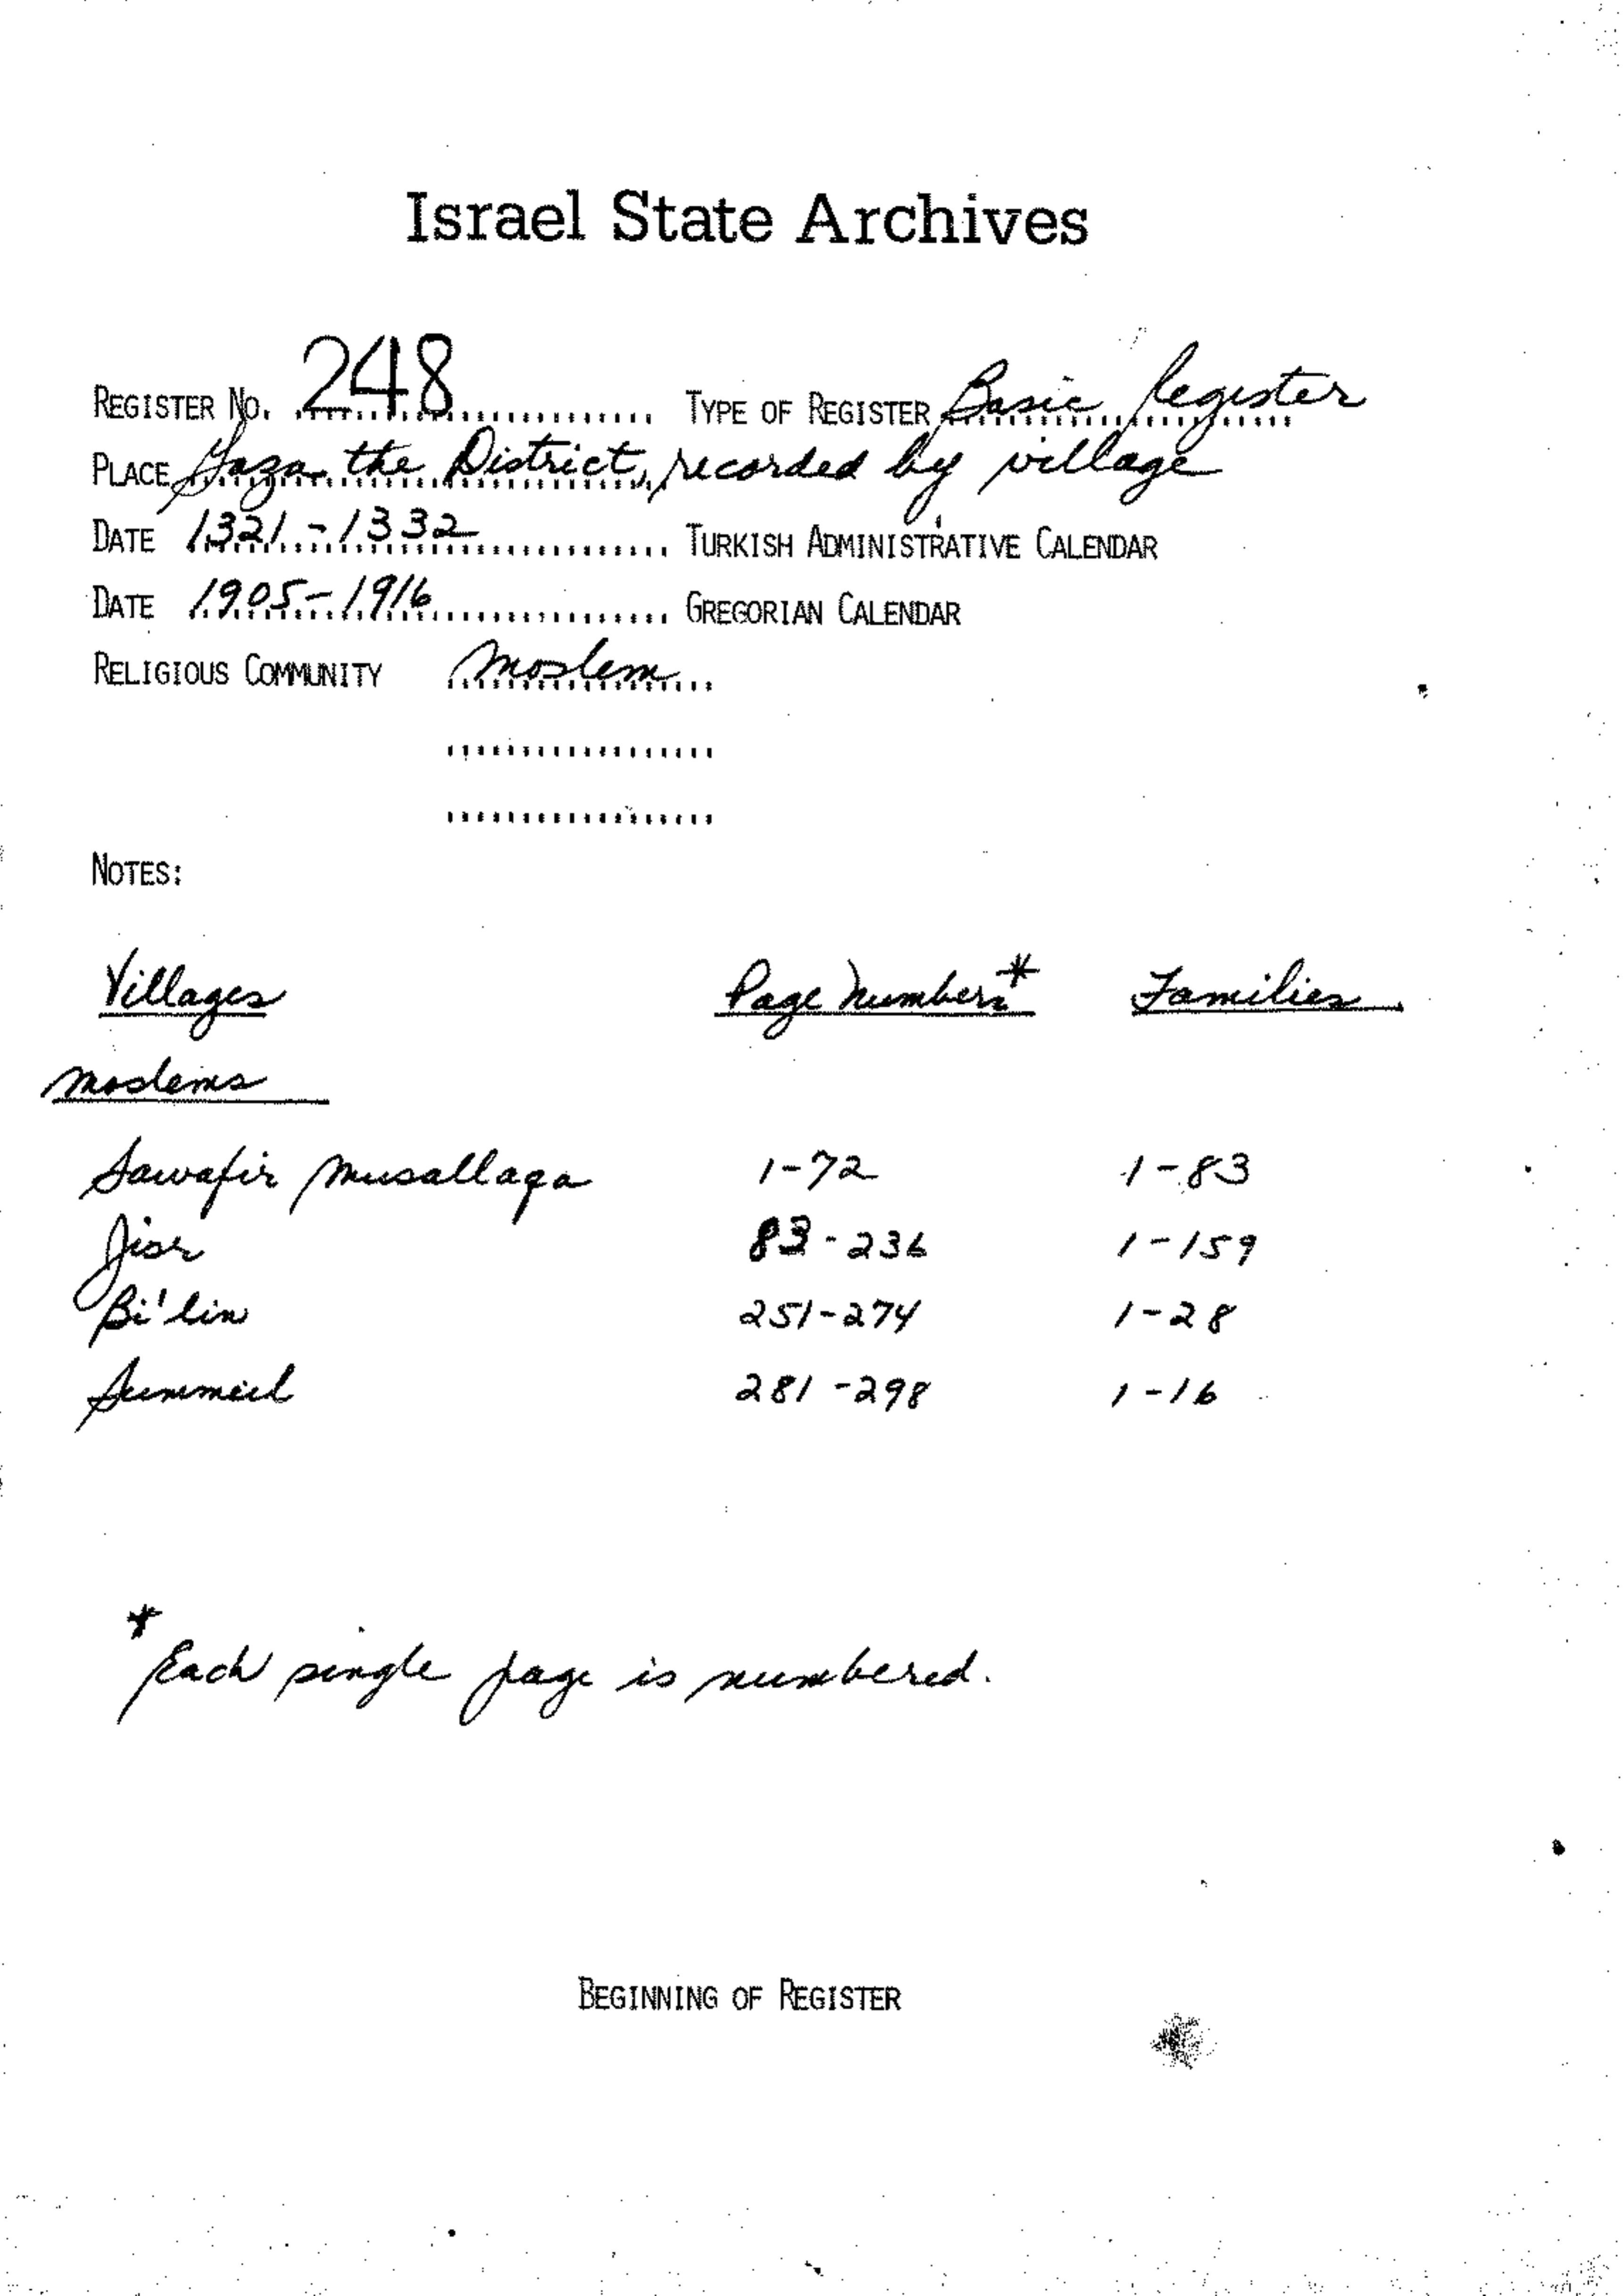 Israel State Archives
REGISTER NO. 248 TYPE OF REGISTER Basic Register
PLACE Gaza the District, recorded by village
DATE 1321-1332 TURKISH ADMINISTRATIVE CALENDAR
DATE 1905-1916 GREGORIAN CALENDAR
RELIGIOUS COMMUNITY Moslem
NOTES:
Villages Page Numbers* Families
Moslems
Sawafir Musallaqa 1-72 1-83
Jisr 83-236 1-159
Bi'lin 251-274 1-28
Summeil 281-298 1-16
* Each single page is numbered.
BEGINNING OF REGISTER